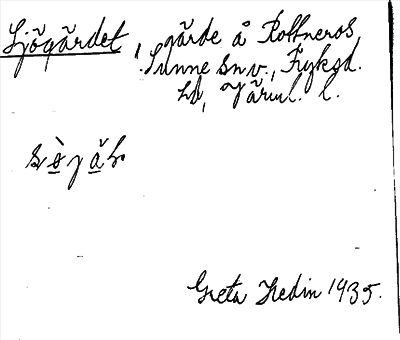 Sjögärdet, gärde å Rottneros,
Sunne snv., Fryksd.
hd, Värml. l.
Greta Hedin 1935.